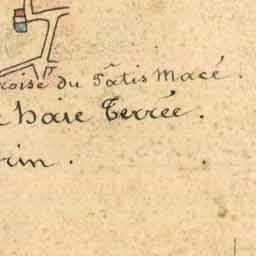 roise du Pâtis Macé.
e haie Terrée.
rin.